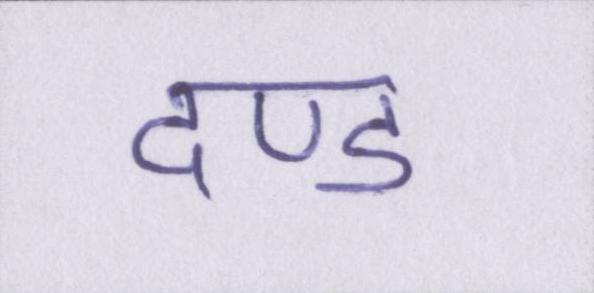 दण्ड